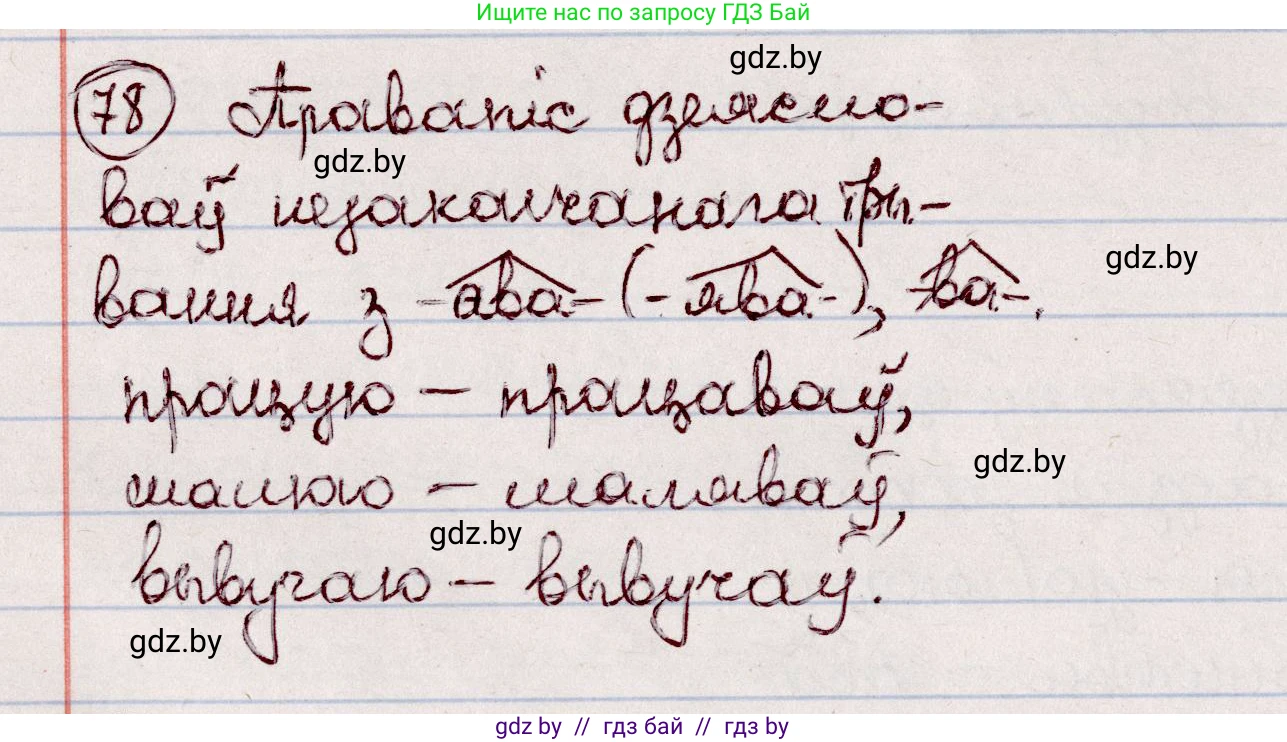 Ищите нас по запросу ГДЗ Бай
gdz.by
78 Правапіс дзеясло-
gdz.by
ваў незакончанага тры-
gdz.by
вання з -ава- (-ява-), -ва-.
працую – працаваў,
gdz.by
малюю – маляваў,
gdz.by
вывучаю – вывучаў.
gdz.by
gdz.by // гдз бай // гдз by